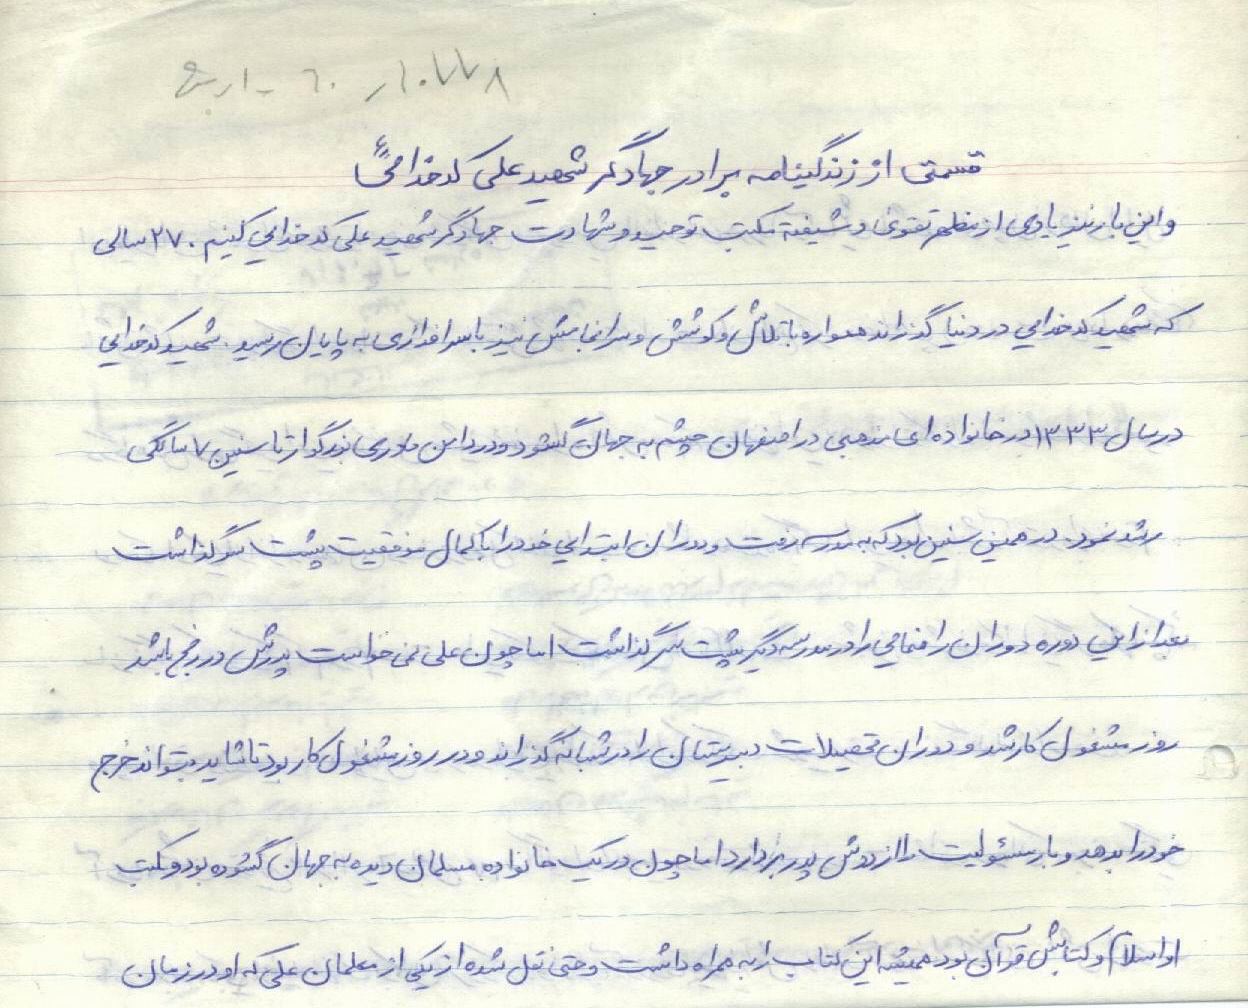 قسمتی از زندگینامه برادر جهادگر شهید علی کدخدامی
و این بار نیز یادی از مظهر تقوی و شیفتهٔ مکتب توحید و شهادت جهادگر شهید علی کدخدایی کنیم. ۲۷ سالی
که شهید کدخدایی در دنیا گذراند همواره با تلاش و کوشش و سرانجامش نیز با سرافرازی به پایان رسید. شهید کدخدایی
در سال ۱۳۳۳ در خانواده ای مذهبی در اصفهان چشم به جهان گشود و در دامن مادری بزرگوار تا سنین ۷ سالگی
رشد نمود. در همین سنین بود که به مدرسه رفت و دوران ابتدایی خود را با کمال موفقیت پشت سر گذاشت
بعد از این دوره دوران راهنمایی را در مدرسه دیگر پشت سر گذاشت اما چون علی نمی خواست پدرش در رنج باشد
روز مشغول کار شد و دوران تحصیلات دبیرستان را در شبانه گذراند و در روز مشغول کار بود تا شاید بتواند خرج
خود را بدهد و بار مسئولیت را از دوش پدر بردارد اما چون در یک خانواده مسلمان دیده به جهان گشوده بود و مکتب
او اسلام و کتابش قرآن بود همیشه این کتاب را به همراه داشت و حتی نقل شده از یکی از معلمان علی که او در زمان